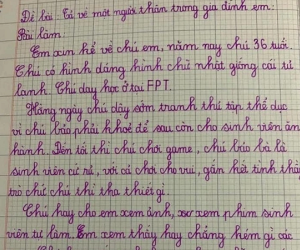 Đề bài: Tả về một người thân trong gia đình em.
Bài làm:
Em xin kể về chú em, năm nay chú 36 tuổi.
Chú có hình dáng hình chữ nhật giống cái tủ
lạnh. Chú dạy học ở tại FPT.
Hằng ngày chú dậy sớm tranh thủ tập thể dục
vì chú bảo phải khoẻ để sau còn cho sinh viên ăn
hành. Đến tối thì chú chơi game, chú bảo ba là
sinh viên cứ rủ, với cả chơi cho vui, gắn kết tình thầy
trò chứ chú thì tha thiết gì.
Chú hay cho em xem ảnh, xơ xem phim sinh
viên tự làm. Em xem thấy hay chẳng kém gì các